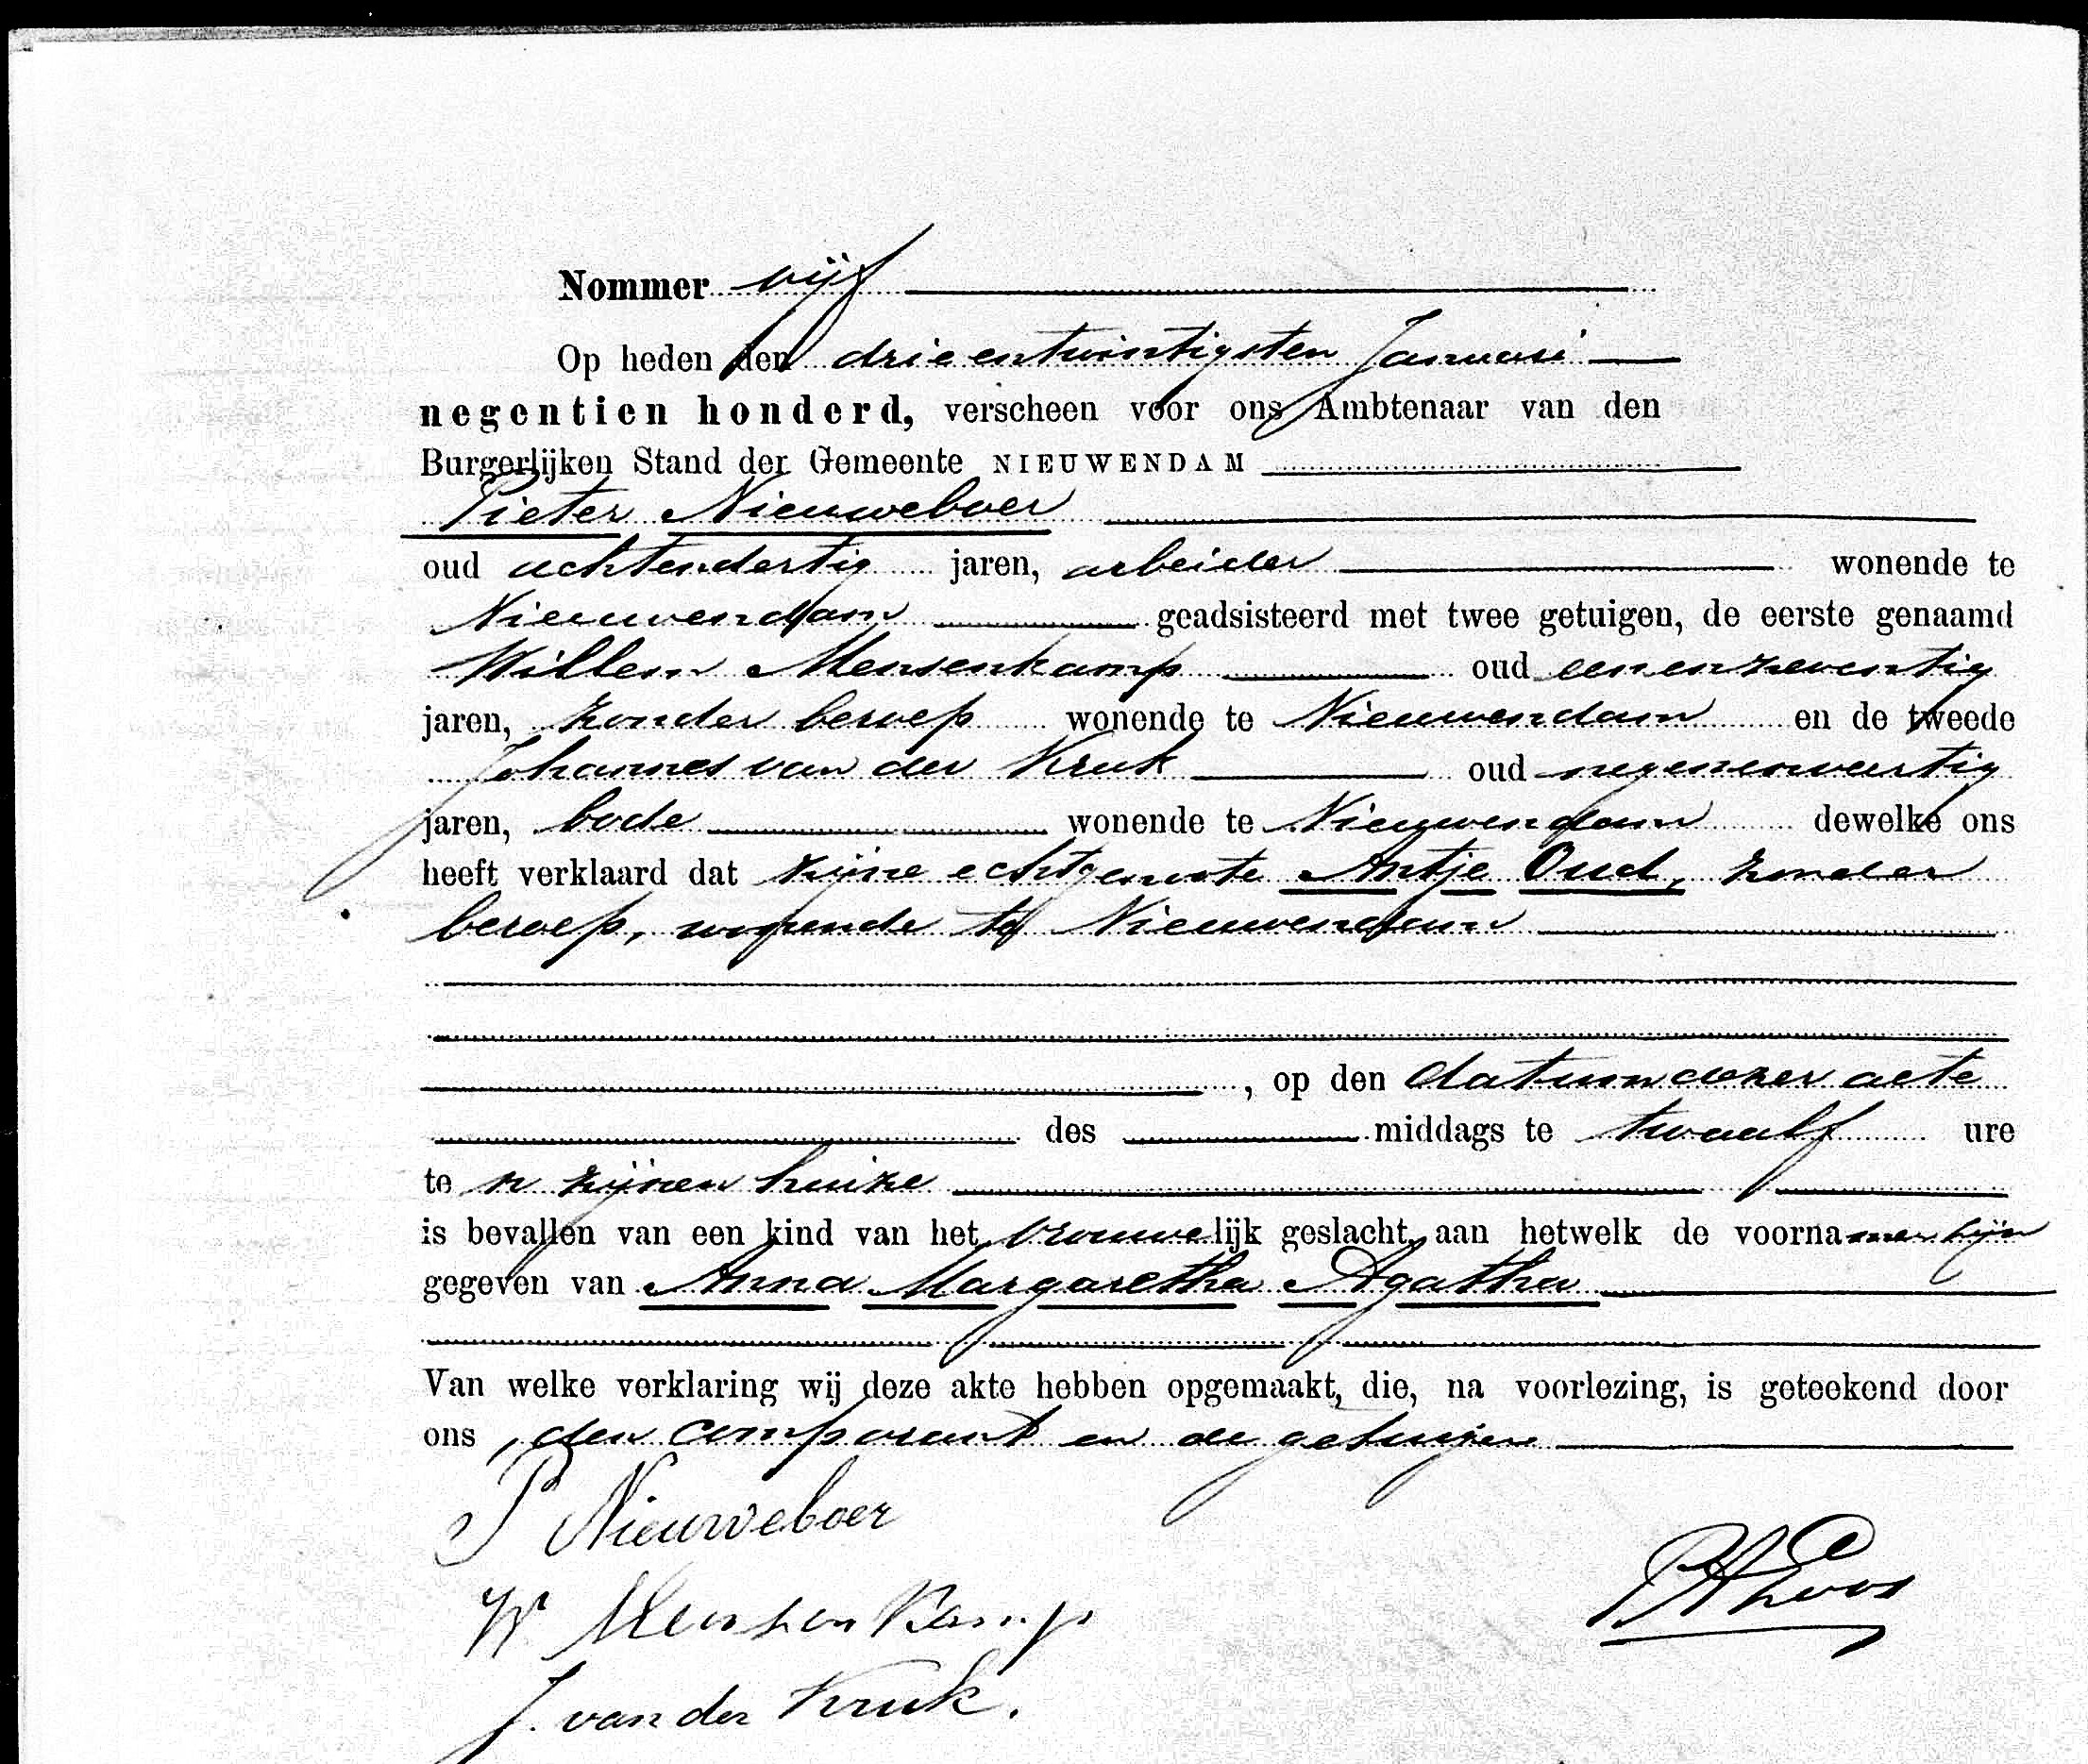 Nommer vijf
Op heden den drieentwintigsten Januari
negentien honderd, verscheen voor ons Ambtenaar van den
Burgerlijken Stand der Gemeente NIEUWENDAM
Pieter Nieuweboer
oud achtendertig jaren, arbeider wonende te
Nieuwendam geadsisteerd met twee getuigen, de eerste genaamd
Willem Mensenkamp oud eenenzeventig
jaren, zonder beroep wonende te Nieuwendam en de tweede
Johannes van der Kruk oud negenenveertig
jaren, bode wonende te Nieuwendam dewelke ons
heeft verklaard dat zijne echtgenoote Antje Oud, zonder
beroep, wonende te Nieuwendam
, op den datum dezer acte
des middags te twaalf ure
te n zijnen huize
is bevallen van een kind van het vrouwelijk geslacht, aan hetwelk de voornamen zijn
gegeven van Anna Margaretha Agatha
Van welke verklaring wij deze akte hebben opgemaakt, die, na voorlezing, is geteekend door
ons, den comparant en de getuigen
P Nieuweboer
W Mensenkamp
J. van der Kruk.